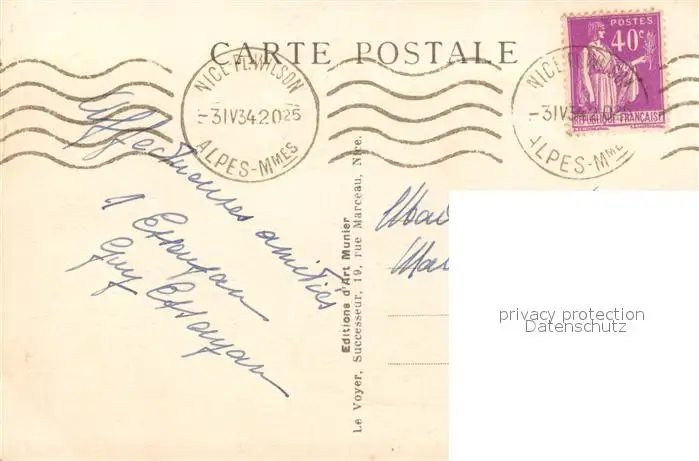 CARTE POSTALE
POSTES
40c
REPUBLIQUE FRANÇAISE
NICE PL. WILSON
-3 IV 34 20 25
ALPES-MMES
NICE PL. WILSON
-3 IV 34 20 25
ALPES-MMES
Affectueuses amitiés
Guy
Editions d'Art Munier
Le Voyer, Successeur, 19, rue Marceau, Nice.
privacy protection
Datenschutz